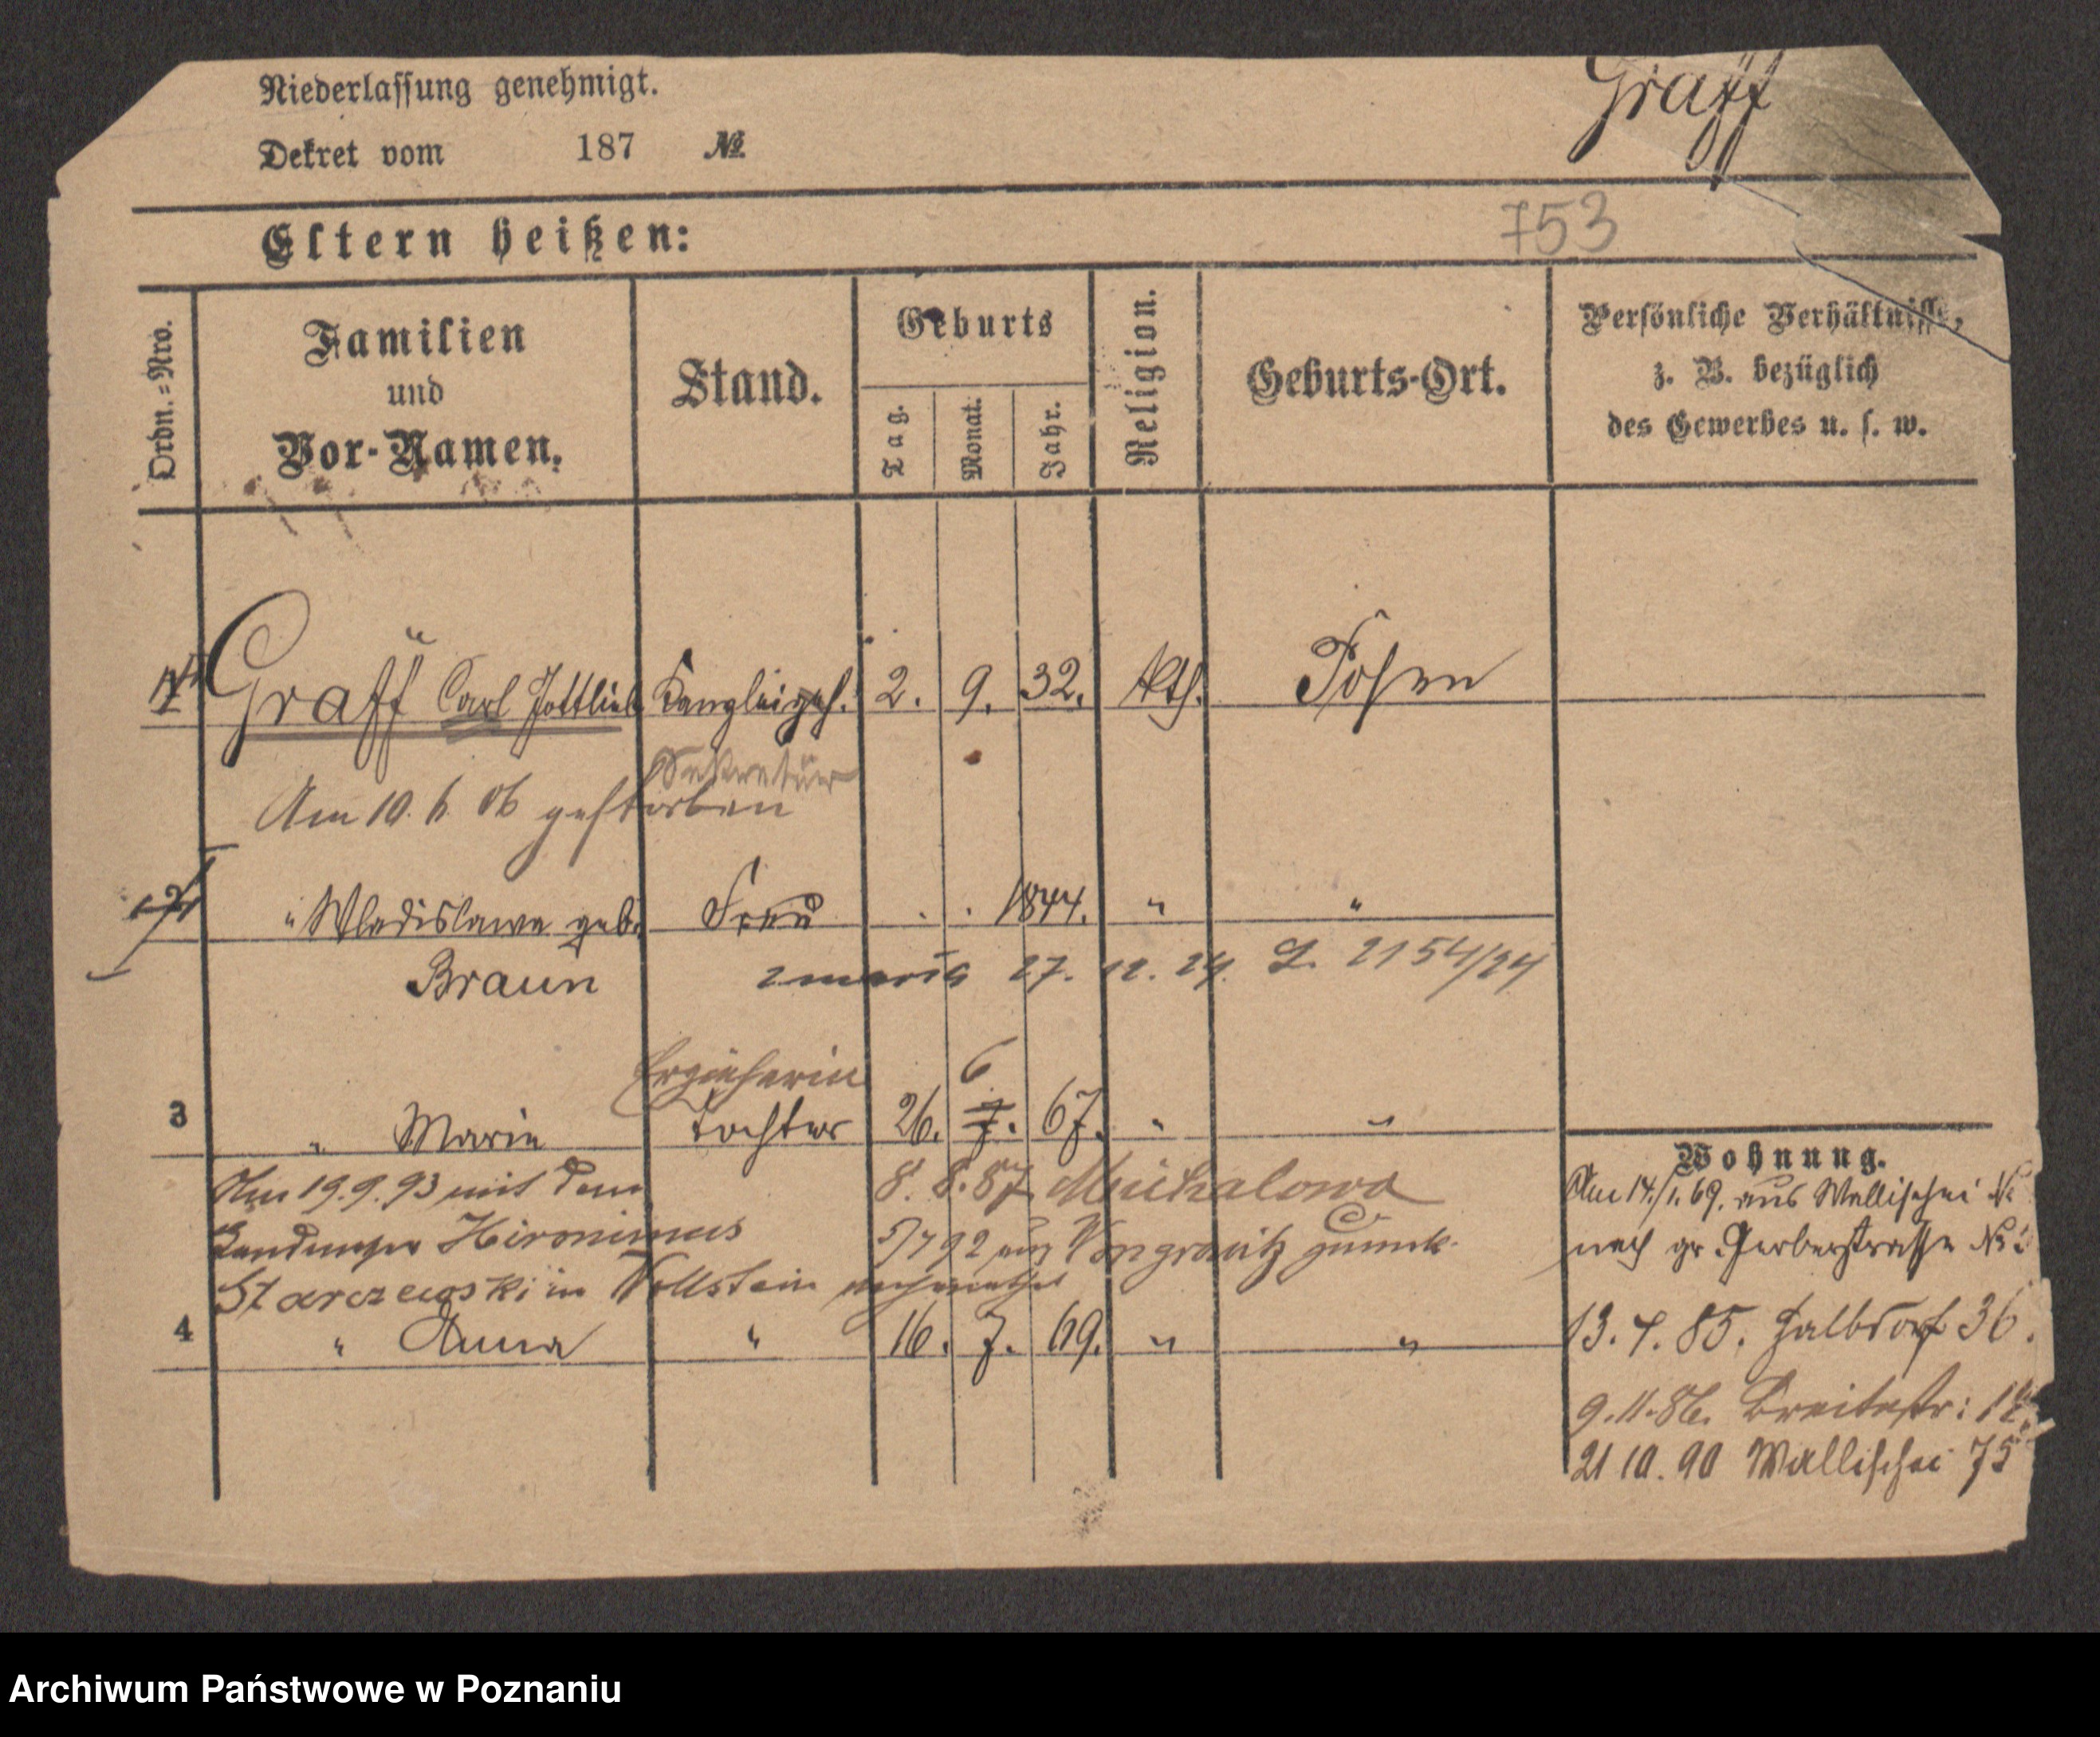 Niederlassung genehmigt.
Gräff
Dekret vom 187 №
Eltern heißen:
753
Ordn.=Nro.
Familien
und
Vor-Namen.
Stand.
Geburts
Tag.
Monat.
Jahr.
Religion.
Geburts-Ort.
Persönliche Verhältnisse,
z. B. bezüglich
des Gewerbes u. s. w.
Gräff Carl Gottlieb Kanzleigeh. 2. 9. 32. kth. Posen
Sekretär
Am 10. 6. 06 gestorben
" Wladislawa geb. Frau . . 1844. " "
Braun
zmarła 27. 12. 24. L. 2154/24
Erzieherin 6
3 " Marie Tochter 26. 7. 67. " "
Wohnung.
Am 19.9.93 mit dem
8. 8. 87 Michalowo
Am 14./1. 69. aus Wallischei №
Hironimus
5/7 92 aus Wongrowitz zurück
nach gr. Gerberstrasse №
Starczewski in Wollstein verheirathet
4 " Anna " 16. 7. 69. " "
13. 4. 85. Halbdorf 36.
9. 11. 86. Breitestr:
21 10. 90 Wallischei 75
Archiwum Państwowe w Poznaniu